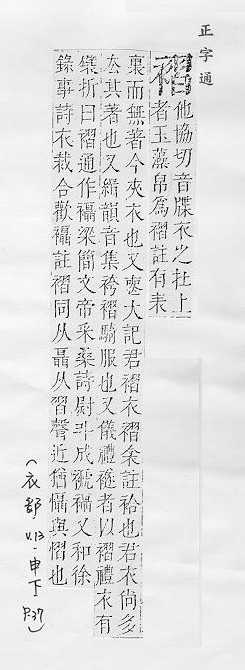 正字通
褶他協切音牒衣之在上
者玉藻帛爲褶註有表
裏而無著今夾衣也又喪大記君褶衣褶衾註袷也君衣尚多
去其著也又緝韻音集袴褶騎服也又儀禮襚者以褶禮衣有
襞折曰褶通作襵梁簡文帝采桑詩尉斗成褫襵又和徐
錄事詩衣裁合歡襵註褶同从聶从習聲近猶懾與慴也
(衣部 V.13-申下 P.37)